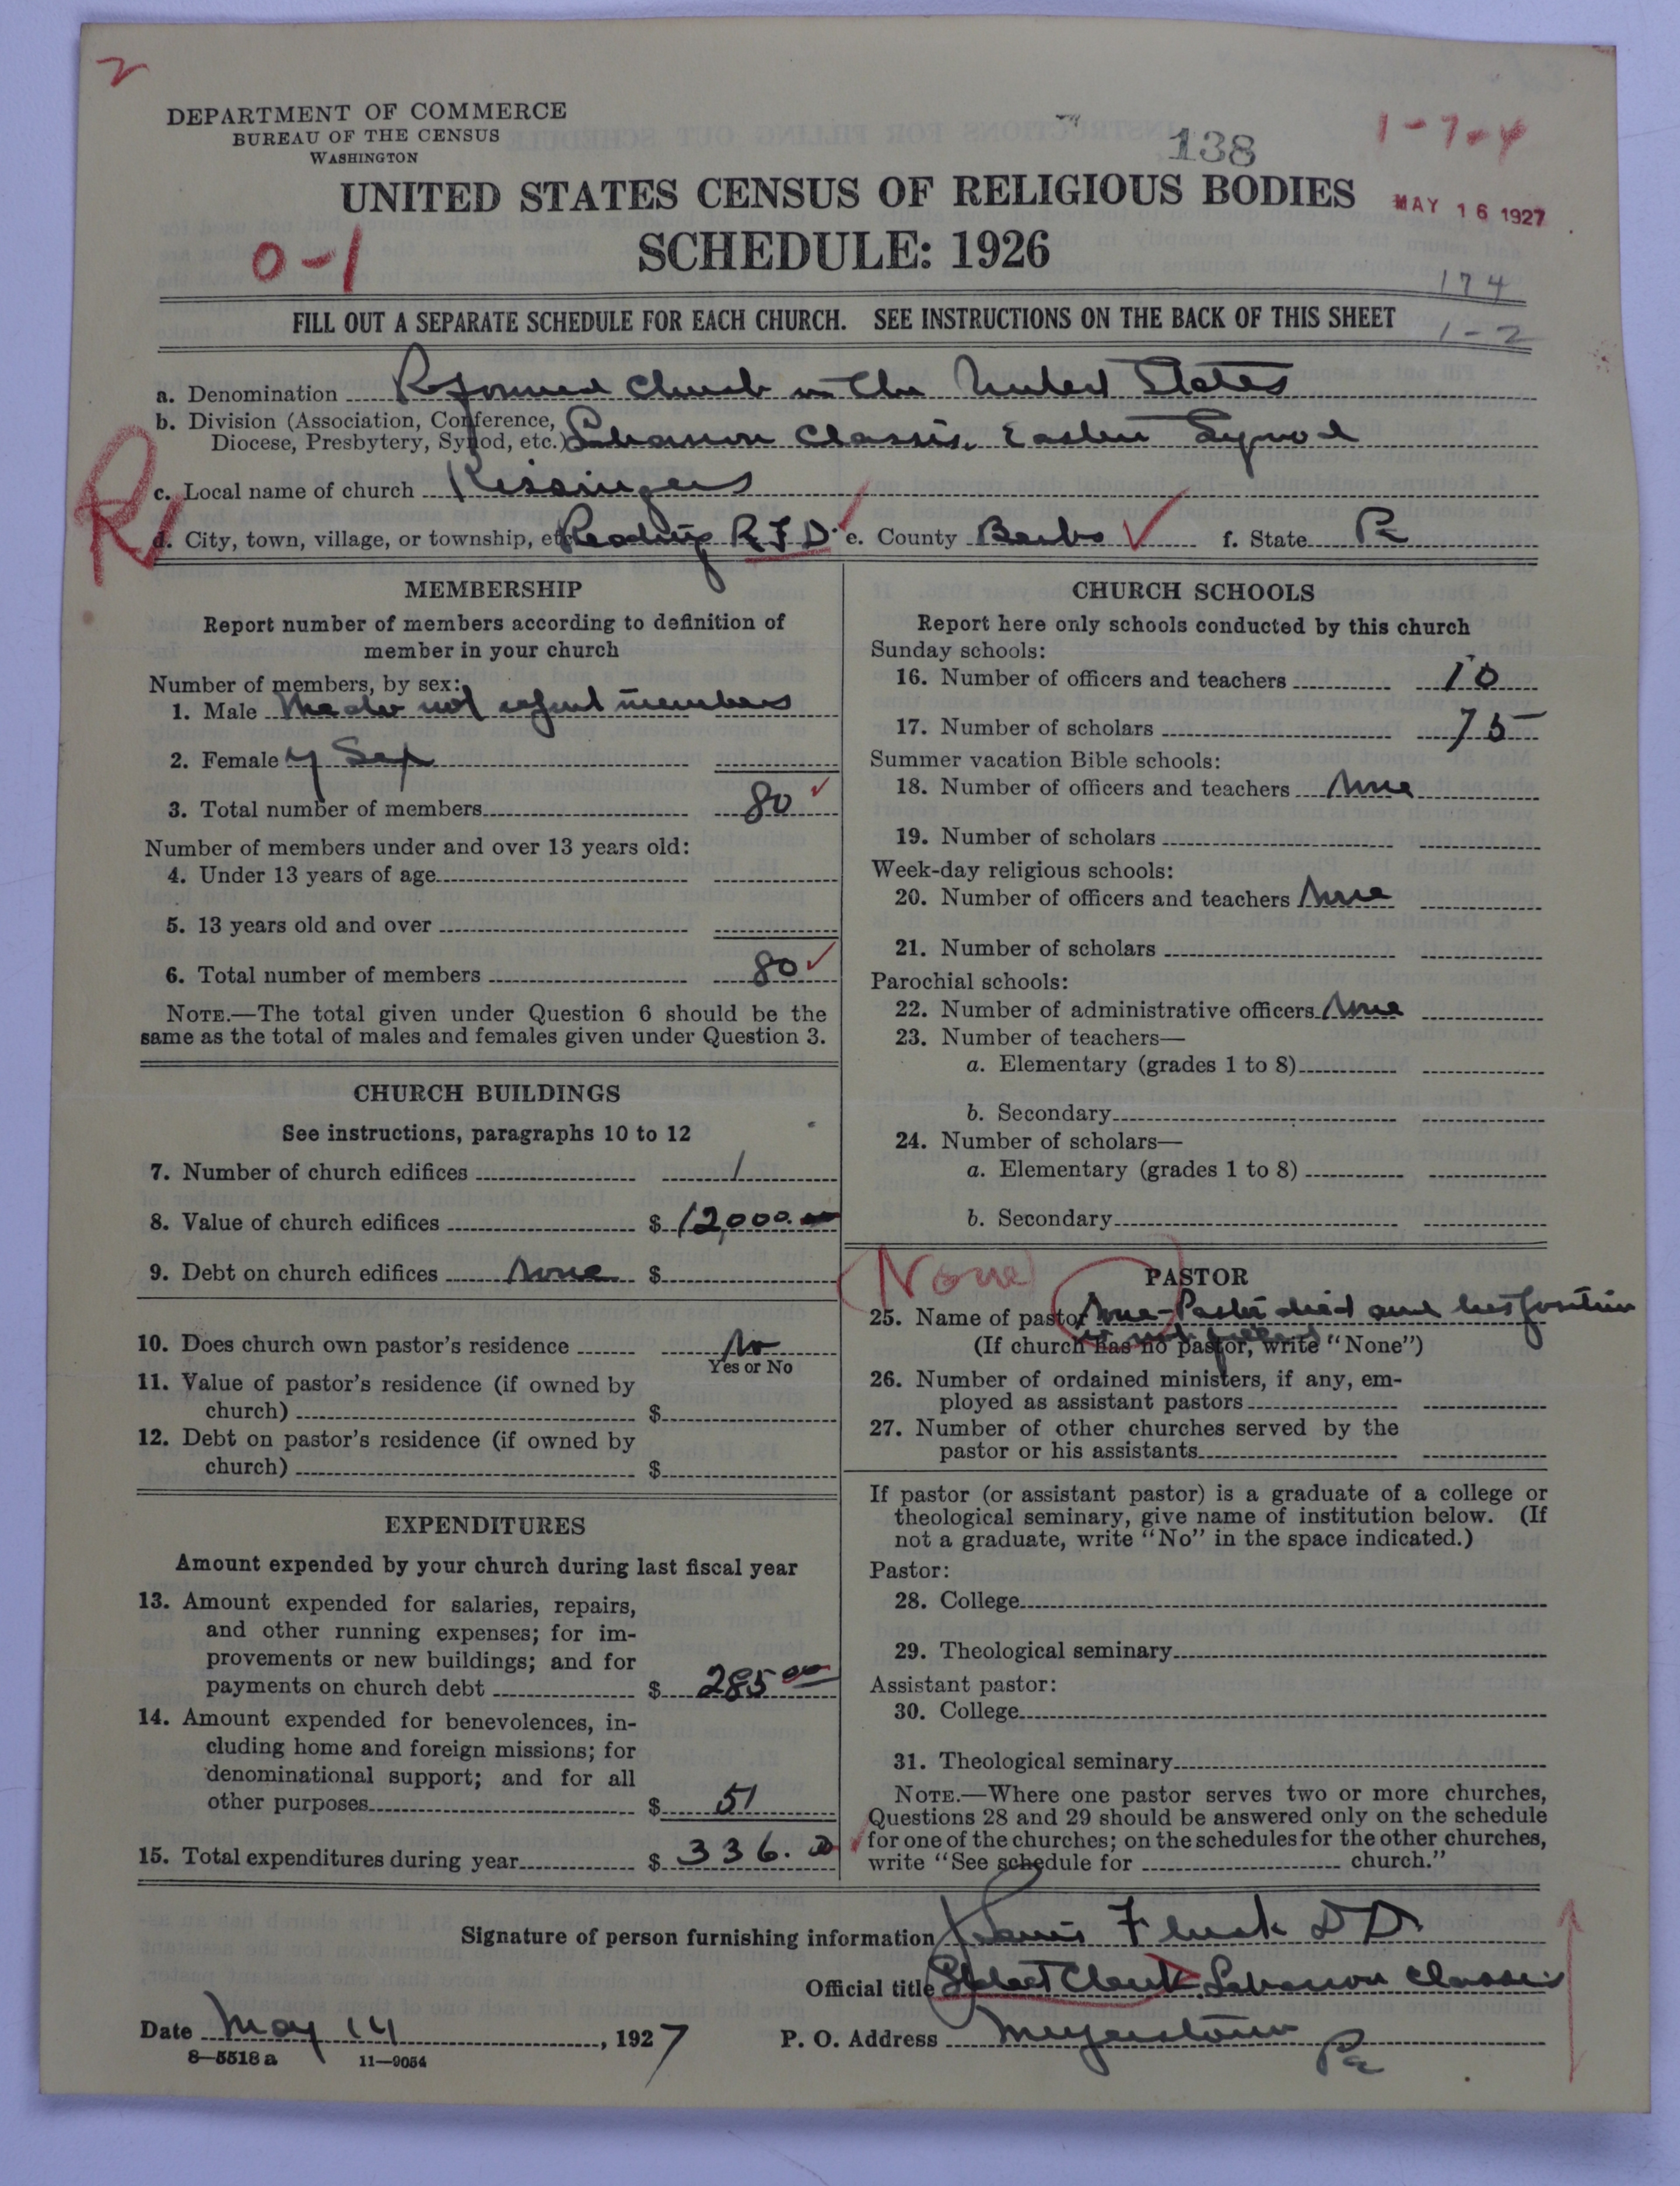 2
DEPARTMENT OF COMMERCE
BUREAU OF THE CENSUS
WASHINGTON
138
1-7-4
UNITED STATES CENSUS OF RELIGIOUS BODIES
MAY 16 1927
0-1
SCHEDULE: 1926
174
FILL OUT A SEPARATE SCHEDULE FOR EACH CHURCH. SEE INSTRUCTIONS ON THE BACK OF THIS SHEET
1-2
a. Denomination Reformed Church in the United States
b. Division (Association, Conference,
Diocese, Presbytery, Synod, etc.) Lebanon Classis, Eastern Synod
R
c. Local name of church Kissingers
d. City, town, village, or township, etc. Reading R F D. e. County Berks f. State Pa
MEMBERSHIP
Report number of members according to definition of
member in your church
Number of members, by sex:
1. Male We do not report members
2. Female by Sex
3. Total number of members 80
Number of members under and over 13 years old:
4. Under 13 years of age
5. 13 years old and over
6. Total number of members 80
NOTE.—The total given under Question 6 should be the
same as the total of males and females given under Question 3.
CHURCH BUILDINGS
See instructions, paragraphs 10 to 12
7. Number of church edifices 1
8. Value of church edifices $ 12,000.
9. Debt on church edifices none $
10. Does church own pastor's residence No
Yes or No
11. Value of pastor's residence (if owned by
church) $
12. Debt on pastor's residence (if owned by
church) $
EXPENDITURES
Amount expended by your church during last fiscal year
13. Amount expended for salaries, repairs,
and other running expenses; for im-
provements or new buildings; and for
payments on church debt $ 285 00
14. Amount expended for benevolences, in-
cluding home and foreign missions; for
denominational support; and for all
other purposes $ 51
15. Total expenditures during year $ 336.
CHURCH SCHOOLS
Report here only schools conducted by this church
Sunday schools:
16. Number of officers and teachers 10
17. Number of scholars 75
Summer vacation Bible schools:
18. Number of officers and teachers None
19. Number of scholars
Week-day religious schools:
20. Number of officers and teachers None
21. Number of scholars
Parochial schools:
22. Number of administrative officers None
23. Number of teachers—
a. Elementary (grades 1 to 8)
b. Secondary
24. Number of scholars—
a. Elementary (grades 1 to 8)
b. Secondary
None
PASTOR
25. Name of pastor None - Pastor died and his position
is not filled
(If church has no pastor, write "None")
26. Number of ordained ministers, if any, em-
ployed as assistant pastors
27. Number of other churches served by the
pastor or his assistants
If pastor (or assistant pastor) is a graduate of a college or
theological seminary, give name of institution below. (If
not a graduate, write "No" in the space indicated.)
Pastor:
28. College
29. Theological seminary
Assistant pastor:
30. College
31. Theological seminary
NOTE.—Where one pastor serves two or more churches,
Questions 28 and 29 should be answered only on the schedule
for one of the churches; on the schedules for the other churches,
write "See schedule for church."
Signature of person furnishing information Fluck D D.
Official title Stated Clerk Lebanon Classis
Date May 14, 1927 P. O. Address Myerstown
Pa
8—5518 a 11—9054